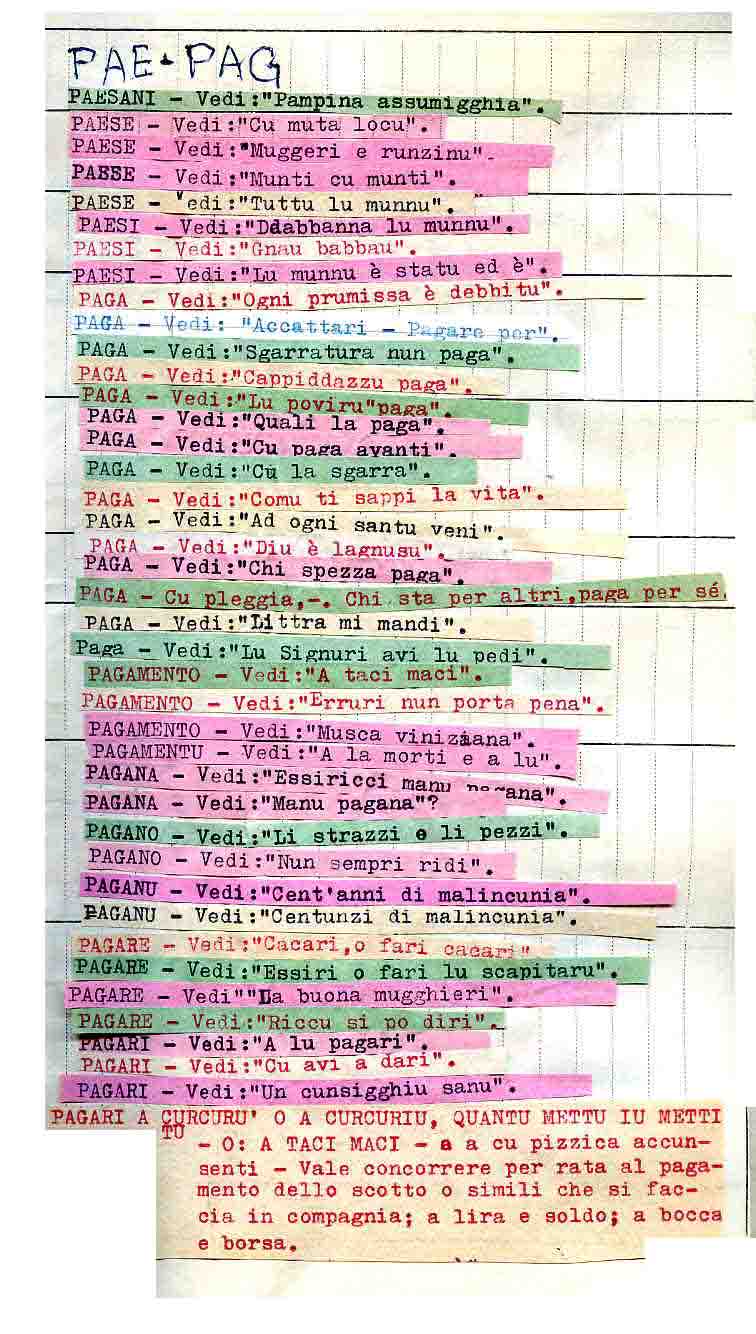 PAE-PAG
PAESANI - Vedi:"Pampina assumigghia".
PAESE - Vedi:"Cu muta locu".
PAESE - Vedi:"Muggeri e runzinu".
PAESE - Vedi:"Munti cu munti".
PAESE - Vedi:"Tuttu lu munnu".
PAESI - Vedi:"Ddabbanna lu munnu".
PAESI - Vedi:"Gnau babbau".
PAESI - Vedi:"Lu munnu è statu ed è".
PAGA - Vedi:"Ogni prumissa è debbitu".
PAGA - Vedi: "Accattari - Pagare per".
PAGA - Vedi:"Sgarratura nun paga".
PAGA - Vedi:"Cappiddazzu paga".
PAGA - Vedi:"Lu poviru"paga".
PAGA - Vedi:"Quali la paga".
PAGA - Vedi:"Cu paga avanti".
PAGA - Vedi:"Cu la sgarra".
PAGA - Vedi:"Comu ti sappi la vita".
PAGA - Vedi:"Ad ogni santu veni".
PAGA - Vedi:"Diu è lagnusu".
PAGA - Vedi:"Chi spezza paga".
PAGA - Cu pleggia,-. Chi sta per altri,paga per sé.
PAGA - Vedi:"Littra mi mandi".
Paga - Vedi:"Lu Signuri avi lu pedi".
PAGAMENTO - Vedi:"A taci maci".
PAGAMENTO - Vedi:"Erruri nun porta pena".
PAGAMENTO - Vedi:"Musca viniziana".
PAGAMENTU - Vedi:"A la morti e a lu".
PAGANA - Vedi:"Essiricci manu pagana".
PAGANA - Vedi:"Manu pagana"?
PAGANO - Vedi:"Li strazzi e li pezzi".
PAGANO - Vedi:"Nun sempri ridi".
PAGANU - Vedi:"Cent'anni di malincunia".
PAGANU - Vedi:"Centunzi di malincunia".
PAGARE - Vedi:"Cacari,o fari cacari"
PAGARE - Vedi:"Essiri o fari lu scapitaru".
PAGARE - Vedi""La buona mugghieri".
PAGARE - Vedi:"Riccu si po diri".
PAGARI - Vedi:"A lu pagari".
PAGARI - Vedi:"Cu avi a dari".
PAGARI - Vedi:"Un cunsigghiu sanu".
PAGARI A CURCURU' O A CURCURIU, QUANTU METTU IU METTI
TU
- O: A TACI MACI - a a cu pizzica accun-
senti - Vale concorrere per rata al paga-
mento dello scotto o simili che si fac-
cia in compagnia; a lira e soldo; a bocca
e borsa.